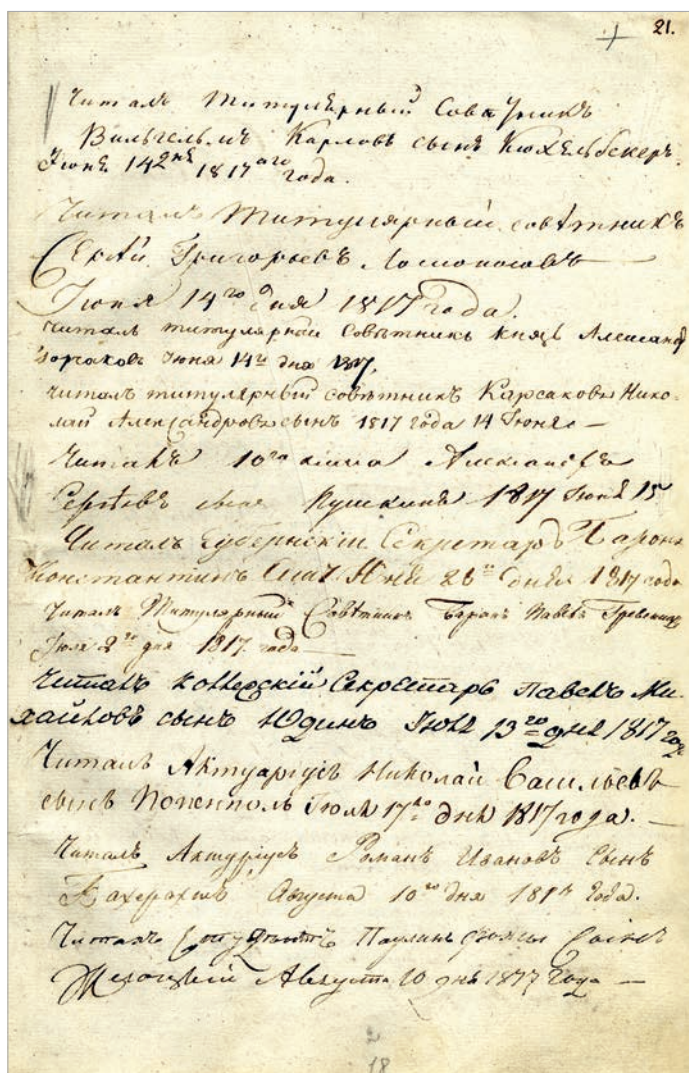 21.
Читалъ Титулярный Совѣтникъ
Вильгельмъ Карловъ сынъ Кюхельбекеръ.
Іюня 14 дня 1817ого года.
Читалъ Титулярный совѣтникъ
Сергѣй Григорьевъ Ломоносовъ
Іюня 14го дня 1817 года.
читалъ титулярный Совѣтникъ Князь Александ
Горчаковъ Іюня 14го дня 1817.
читалъ титулярный совѣтникъ Карсаковъ Нико-
лай Александровъ сынъ 1817 года 14 Іюня –
Читалъ 10го класса Александръ
Сергѣевъ сынъ Пушкинъ 1817 Іюня 15
Читалъ Губернскій Секретарь Баронъ
Константинъ 28го Дня 1817 года
Читалъ Титулярный Совѣтникъ Баронъ Павелъ
Іюля 2го дня 1817. года –
Читалъ Коллежскій Секретарь Павелъ Ми-
хайловъ сынъ Юдинъ Іюля 13го дня 1817 года
Читалъ Актуаріусъ Николай Васильевъ
сынъ Іюля 17го дня 1817 года. –
Читалъ Актуріусъ Романъ Ивановъ Сынъ
Августа 10го дня 1817 Года.
Читалъ Студентъ Паулинъ Сынъ
Августа 10 дня 1817 Года –
2
18